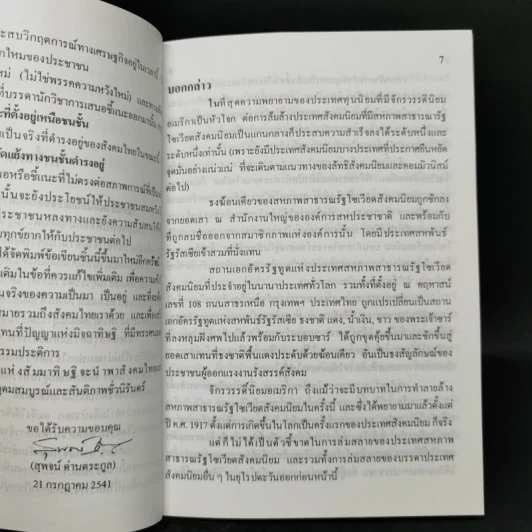 ะสบวิกฤตการณ์ทางเศรษฐกิจอยู่ในเวลานี้
กใหมของประชาชน
ใหม่ (ไม่ใช่พรรคความหวังใหม่)
ที่บรรดานักวิชาการเสนอชี้แนะออกมานั้น ๆ
ะที่ตั้งอยู่เหนือชนชั้น
เป็นจริงที่ดำรงอยู่ของสังคมไทยในขณะนี้
ัดแย้งทางชนชั้นดำรงอยู่
อหรือชี้แนะที่ไม่ตรงต่อสภาพการณ์ที่เป็น
นั้นจะยังประโยชน์ให้ประชาชนสมหวัง
ประชาชนหลงทางและยังความสับสนให้
ุกข์ยากให้กับประชาชนต่อไป
ได้จัดพิมพ์ข้อเขียนชิ้นนี้ขึ้นมาใหม่อีกครั้ง
เดิมในข้อที่ควรแก้ไขเพิ่มเติม เพื่อความเข้า
นจริงของความเป็นมา เป็นอยู่ และที่จะ
มายรวมถึงสังคมไทยเราด้วย และเพื่อ
แทนที่ปัญญาแห่งมิจฉาทิฐิ ที่มีทรรศนะ
รรมประติการ
แห่งสัมมาทิฐิ จะนำพาสังคมไทย
ดมสมบูรณ์และสันติภาพชั่วนิรันดร์
ขอได้รับความขอบคุณ
(สุพจน์ ด่านตระกูล)
21 กรกฎาคม 2541
7
บอกกล่าว
ในที่สุดความพยายามของประเทศทุนนิยมที่มีจักรวรรดินิยม
อเมริกาเป็นหัวโจก ต่อการล้มล้างประเทศสังคมนิยมที่มีสหภาพสาธารณรัฐ
โซเวียตสังคมนิยมเป็นแกนกลางก็ประสบความสำเร็จลงได้ระดับหนึ่งและ
ระดับหนึ่งเท่านั้น (เพราะยังมีประเทศสังคมนิยมบางประเทศที่ประกาศยืนหยัด
จุดมั่นอย่างแน่วแน่ ที่จะเดินตามแนวทางของลัทธิสังคมนิยมและคอมมิวนิสม์
ต่อไป)
ธงฆ้อนเคียวของสหภาพสาธารณรัฐโซเวียตสังคมนิยมถูกชักลง
จากยอดเสา ณ สำนักงานใหญ่ขององค์การสหประชาชาติ และพร้อมกับ
ที่ถูกลบชื่อออกจากสมาชิกภาพแห่งองค์การนั้น โดยมีประเทศสหพันธ์
รัฐรัสเซียเข้าสวมที่นั่งแทน
สถานเอกอัครรัฐทูตแห่งประเทศสหภาพสาธารณรัฐโซเวียต
สังคมนิยมที่ประจำอยู่ในนานาประเทศทั่วโลก รวมทั้งที่ตั้งอยู่ ณ คฤหาสน์
เลขที่ 108 ถนนสาธรเหนือ กรุงเทพฯ ประเทศไทย ถูกแปรเปลี่ยนเป็นสถาน
เอกอัครรัฐทูตแห่งสหพันธ์รัฐรัสเซีย ธงชาติ แดง, น้ำเงิน, ขาว ของพระเจ้าซาร์
ที่ลงหลุมฝังศพไปแล้วพร้อมกับระบอบซาร์ ได้ถูกขุดคุ้ยขึ้นมาและชักขึ้นสู่
ยอดเสาแทนที่ธงชาติพื้นแดงประดับด้วยฆ้อนเคียว อันเป็นธงสัญลักษณ์ของ
ประชาชนผู้ออกแรงงานรังสรรค์สังคม
จักรวรรดิ์นิยมอเมริกา ถึงแม้ว่าจะมีบทบาทในการทำลายล้าง
สหภาพสาธารณรัฐโซเวียตสังคมนิยมในครั้งนี้ และซึ่งได้พยายามมาแล้วตั้งแต่
ปี ค.ศ. 1917 ตั้งแต่การเกิดขึ้นในโลกเป็นครั้งแรกของประเทศสังคมนิยม ก็จริง
แต่ก็ไม่ได้เป็นตัวชี้ขาดในการล่มสลายของประเทศสหภาพ
สาธารณรัฐโซเวียตสังคมนิยม และรวมทั้งการล่มสลายของบรรดาประเทศ
สังคมนิยมอื่น ๆ ในยุโรปตะวันออกก่อนหน้านี้